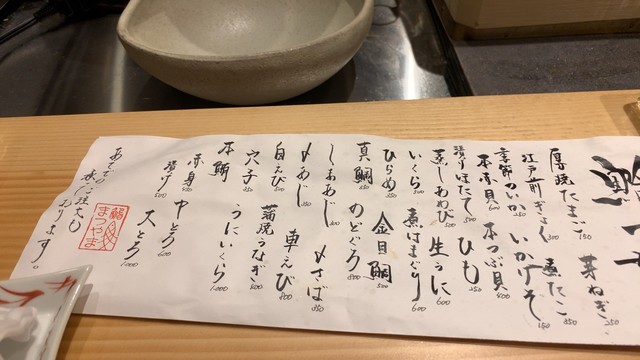 厚焼たまご 150 芽ねぎ 250
江戸前ぎょく 煮たこ 350
季節のいか 250 いかげそ 150
本赤貝 600 本つぶ貝 400
ほたて 500 ひも 250
蒸しあわび 500 生うに 600
いくら 500 煮はまぐり 600
ひらめ 350 金目鯛 500
真鯛 350 のどぐろ 800
しまあじ 〆さば 350
〆あじ 350 車えび 800
白えび 500 蒲焼うなぎ
穴子 350 うにいくら 1,000
本鮪
赤身 中とろ 600
漬け 大とろ 1,000
おります。
鮨
まつやま